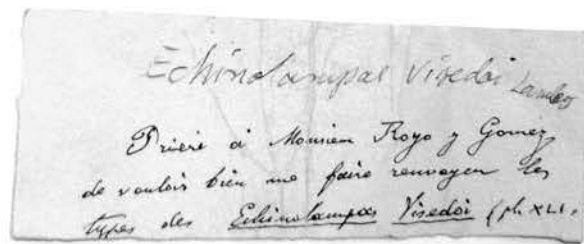 Echinolampas Visedoi Lambert
Prière à Monsieur Royo y Gomez
de vouloir bien me faire renvoyer les
types des Echinolampas Visedoi (pl. XLI,